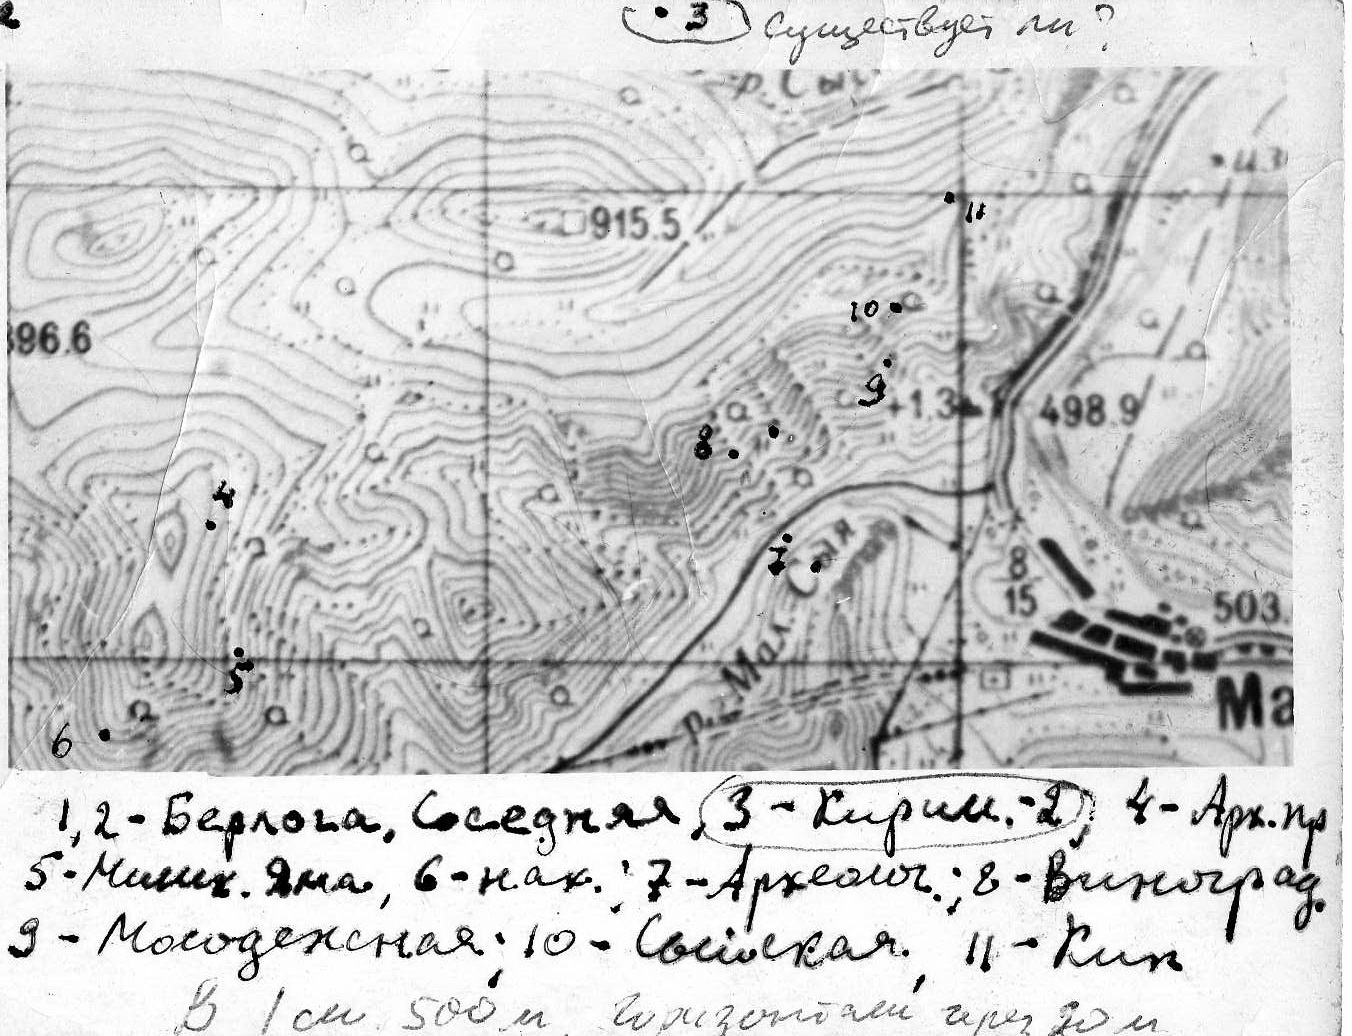 2
3 Существует ли?
р. Сы
из
915.5
11
10
896.6
9
+1.3
498.9
8
4
7
8
15
503.
р. Мал. Сыя
5
Ма
6
1,2 - Берлога, Соседняя, 3 - Кирим.-2, 4 - Арх. пр
5 - Миних. Яма, 6 - нах.; 7 - Археолог.; 8 - Виноград.
9 - Молодежная; 10 - Сыйская, 11 - Кип
В 1 см 500 м, горизонтали через 20 м